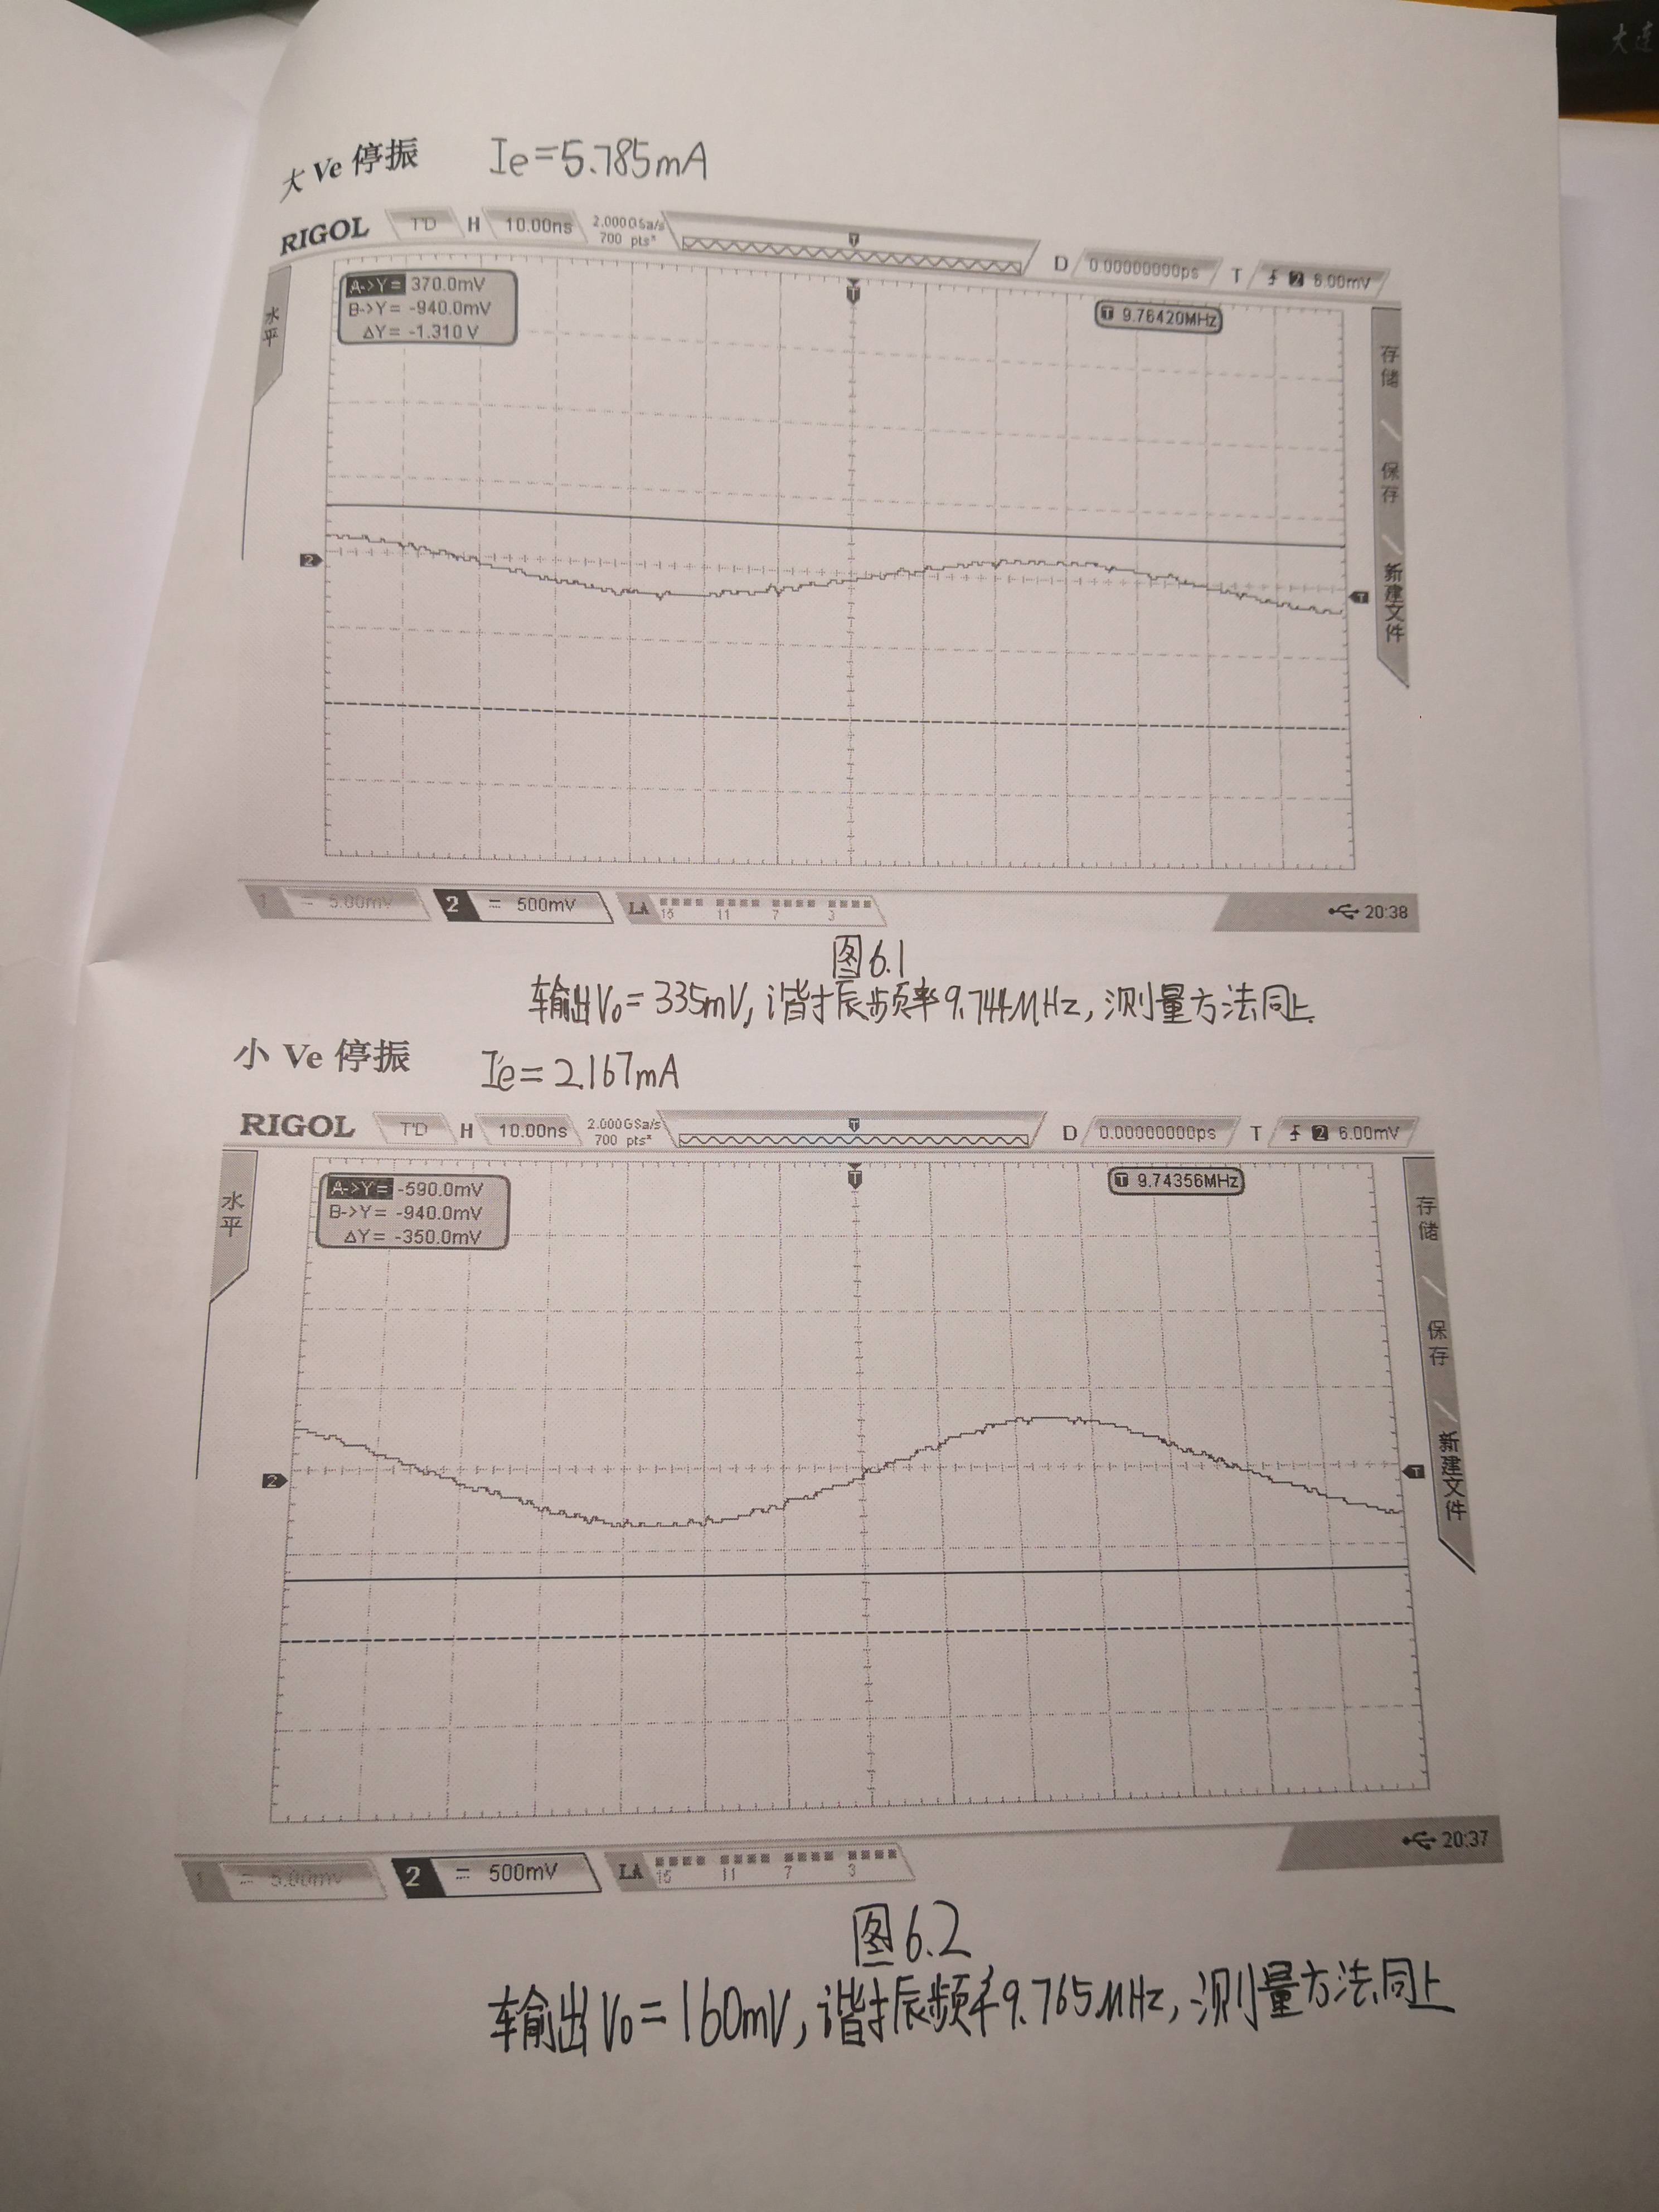 大连
大 Ve 停振 Ie=5.785mA
RIGOL T'D H 10.00ns 2.000GSa/s 700 pts D 0.00000000ps T 2 6.00mV
水平
A->Y= 370.0mV
B->Y= -940.0mV
ΔY= -1.310 V
T 9.76420MHz
存储
保存
新建文件
2
T
1 = 5.00mV 2 = 500mV LA 15 11 7 3 20:38
图6.1
输出Vo=335mV,谐振频率9.744MHz,测量方法同上.
小 Ve 停振 Ie=2.167mA
RIGOL T'D H 10.00ns 2.000GSa/s 700 pts D 0.00000000ps T 2 6.00mV
水平
A->Y= -590.0mV
B->Y= -940.0mV
ΔY= -350.0mV
T 9.74356MHz
存储
保存
新建文件
2
T
1 = 5.00mV 2 = 500mV LA 15 11 7 3 20:37
图6.2
输出Vo=160mV,谐振频率9.765MHz,测量方法同上